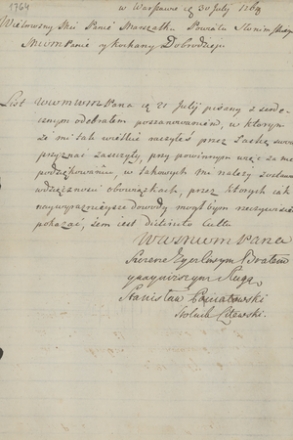 1764
w Warszawie 30 Julij 1764
Wielmożny Mći Panie Marszałku Powiatu Słonimskiego
Mwm Panie y kochany Dobrodzieju
List wwmwm Pana 21 Julij pisany z serde-
cznym odebrałem poszanowaniem, w którym
że mi tak wielkie raczyłeś przez Łaskę swoią
przyznać zaszczyty, przy powinnym
podziękowaniu, w takowych mi należy zostawać
wdzięczności obowiązkach, przez których iak
naywyraznieysze dowody mogł bym rzeczywiście
pokazać, żem iest distincto cultu
Wmwm Pana
Szerze Bratem
y nayniższym Sługą
Stanisław Poniatowski
Stolnik Litewski.